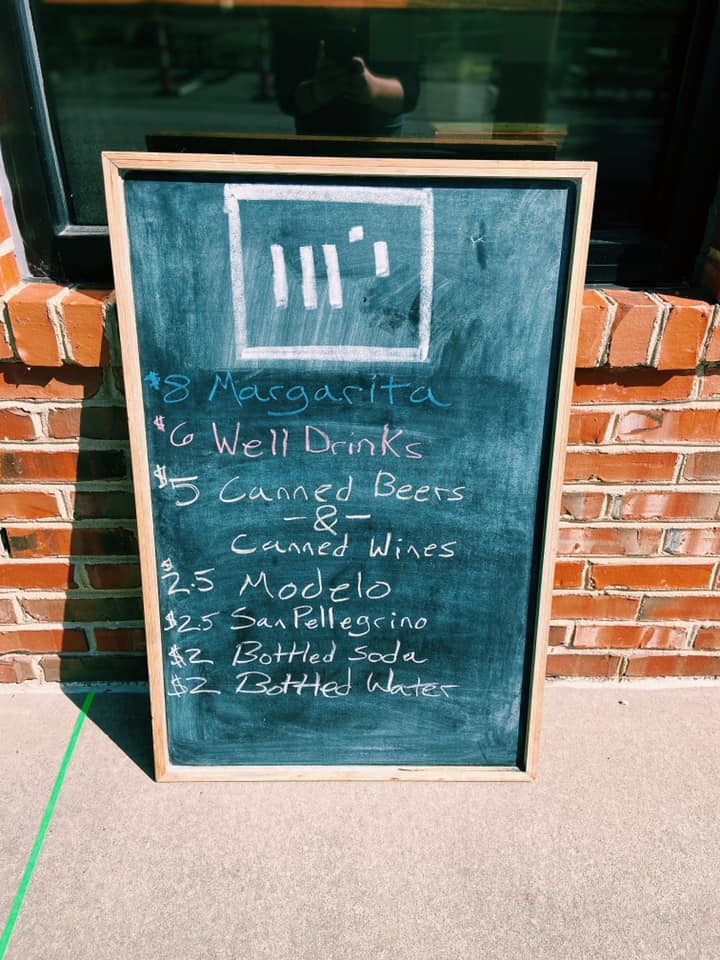 $8 Margarita
$6 Well Drinks
$5 Canned Beers
-&-
Canned Wines
$2.5 Modelo
$2.5 San Pellegrino
$2 Bottled Soda
$2 Bottled Water